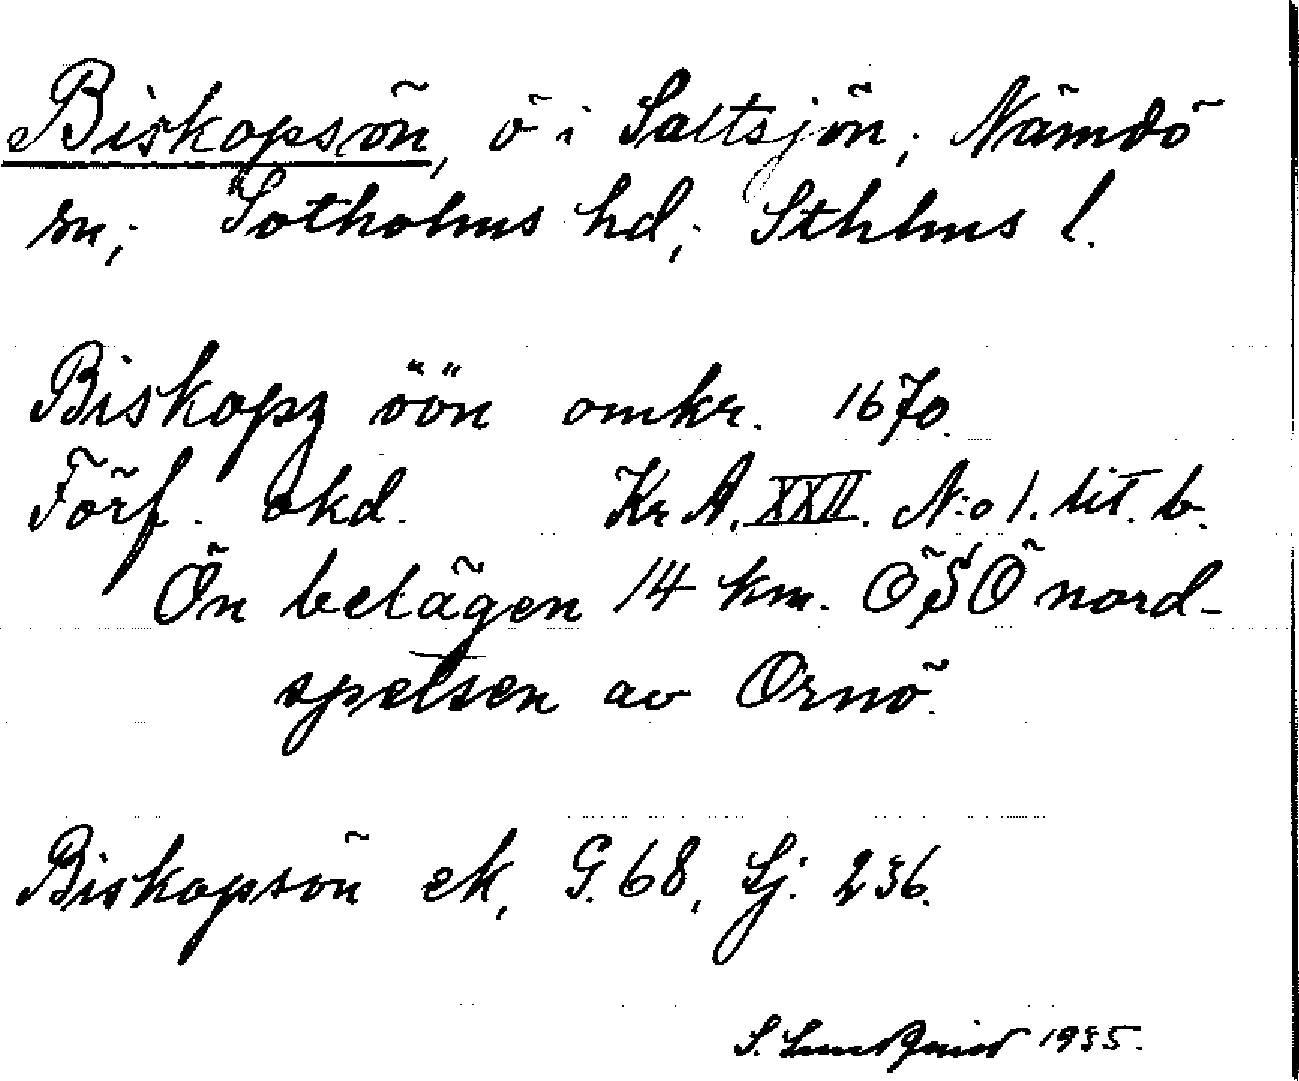 Biskopsön, ö i Saltsjön; Nämdö
sn; Sotholms hd; Sthlms l.
Biskopz öön omkr. 1670.
Förf. okd. Kr A. XXII. N:o 1. lit. b.
Ön belägen 14 km. ÖSÖ nord-
spetsen av Ornö.
Biskopsön ek, G. 68, Sj. 236.
S. Lundquist 1935.